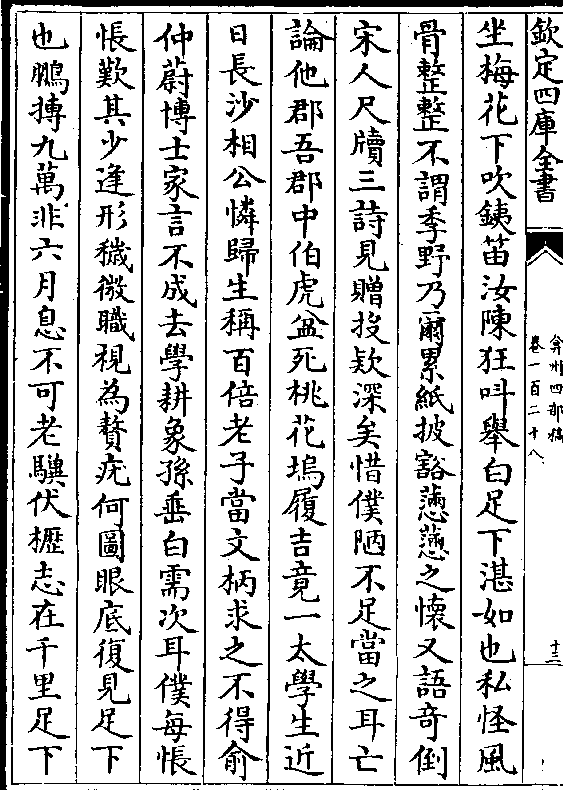 欽定四庫全書
弇州四部稿
卷一百二十八
十三
坐梅花下吹鐵笛汝陳狂叫舉白足下湛如也私怪風
骨整整不謂季野乃爾累紙披豁懣懣之懷又語奇倒
宋人尺牘三詩見贈投欵深矣惜僕陋不足當之耳亡
論他郡吾郡中伯虎盆死桃花塢履吉竟一太學生近
日長沙相公憐歸生稱百倍老子當文柄求之不得俞
仲蔚博士家言不成去學耕象孫垂白需次耳僕每悵
悵歎其少逢形穢微職視為贅疣何圖眼底復見足下
也鵬摶九萬非六月息不可老驥伏櫪志在千里足下